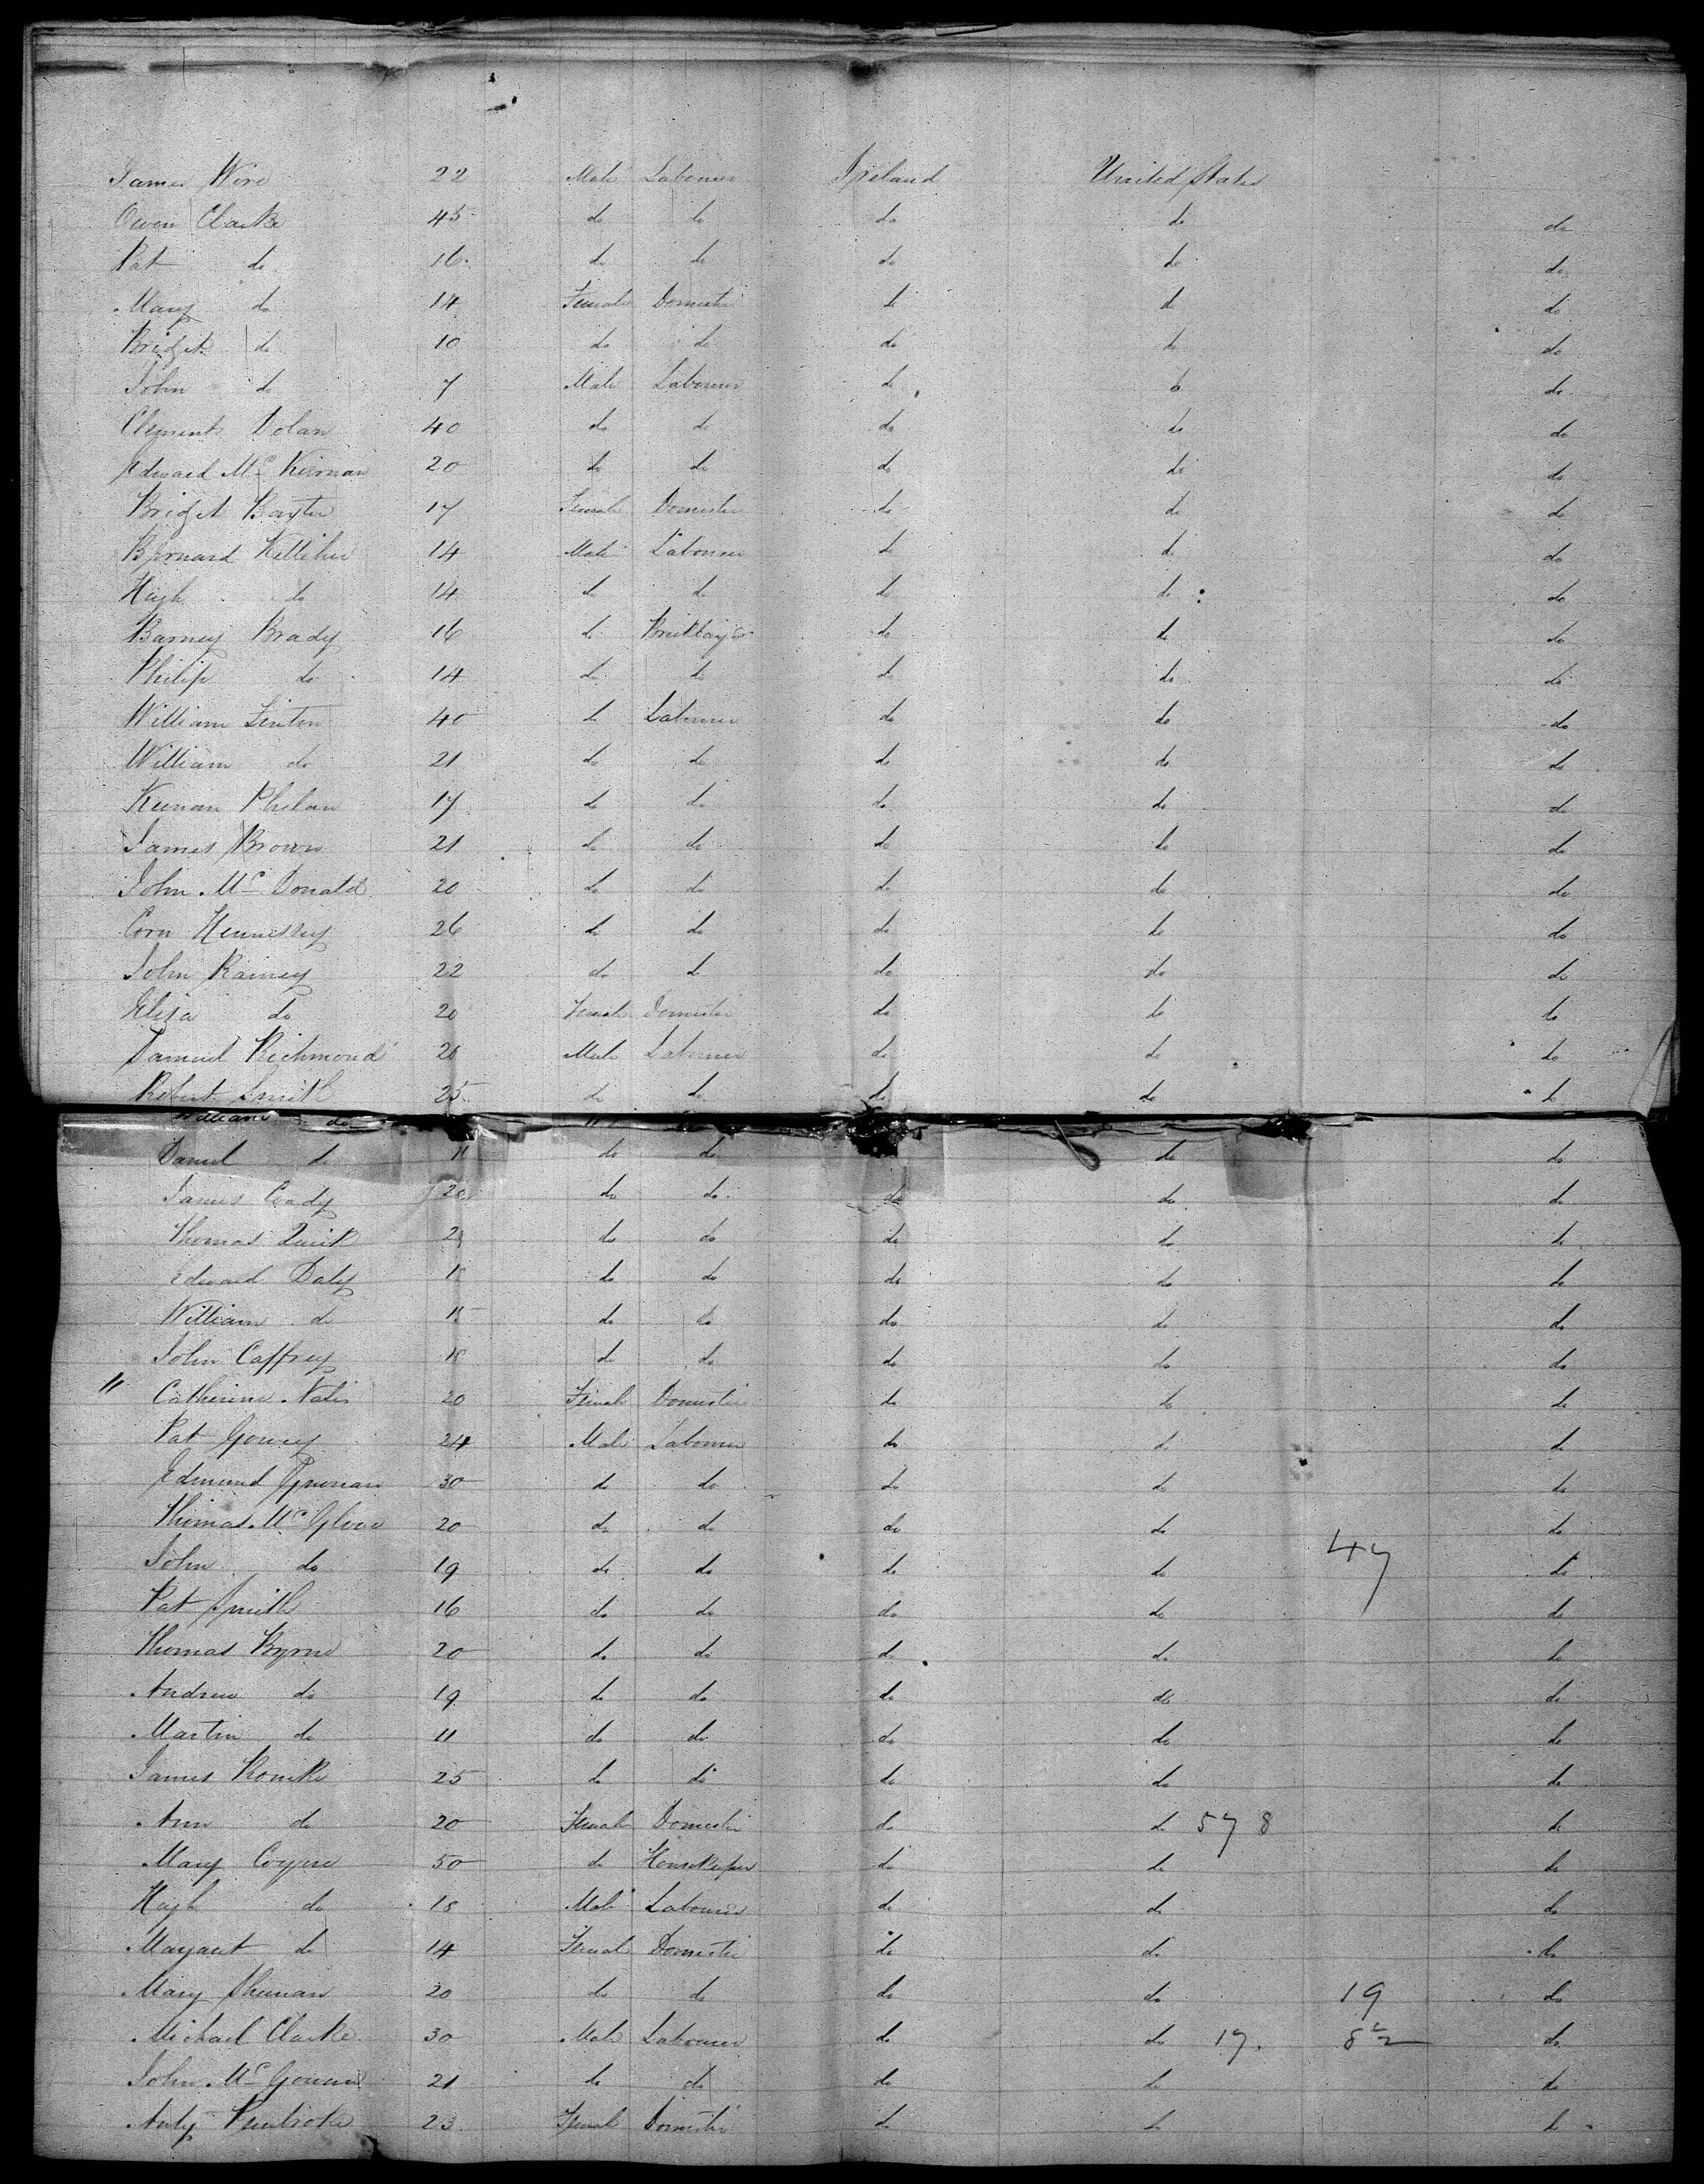 James Wire 22 Male Labourer Ireland United States
Owen Clarke 45 do do do do do
Pat do 16 do do do do do
Mary do 14 Female Domestic do do do
Bridget do 10 do do do do do
John do 7 Male Labourer do do do
Clement Dolan 40 do do do do do
Edward Mc Kiernan 20 do do do do do
Bridget Baxter 17 Female Domestic do do do
Bernard Kelliher 14 Male Labourer do do do
Hugh do 14 do do do do do
Barney Brady 16 do do do do
Philip do 14 do do do do do
William Linton 40 do Labourer do do do
William do 21 do do do do do
Keenan Phelan 17 do do do do do
James Brown 21 do do do do do
John Mc Donald 20 do do do do do
Corn Hennessey 26 do do do do do
John Rainey 22 do do do do do
Eliza do 20 Female Domestic do do do
Samuel Richmond 20 Male Labourer do do do
Robert Smith 25 do do do do do
William do
Daniel do 11 do do do do
James Coady 20 do do do do do
Thomas Quirk 2 do do do do do
Edward Daly do do do do do
William do do do do do do
John Caffrey 18 do do do do do
" Catherine 20 Female Domestic do do do
Pat 24 Male Labourer do do do
Edmund 30 do do do do do
Thomas Mc 20 do do do do do
John do 19 do do do do 47 do
Pat Smith 16 do do do do do
Thomas Byrne 20 do do do do do
Andrew do 19 do do do do do
Martin do 11 do do do do do
James 25 do do do do do
Ann do 20 Female Domestic do do 578 do
Mary Coyne 50 do Housekeeper do do do
Hugh do 18 Male Labourer do do do
Margaret do 14 Female Domestic do do do
Mary 20 do do do do 19 do
Michael Clarke 30 Male Labourer do do 17. do
John Mc Gowan 21 do do do do do
Pembroke 23 Female Domestic do do do